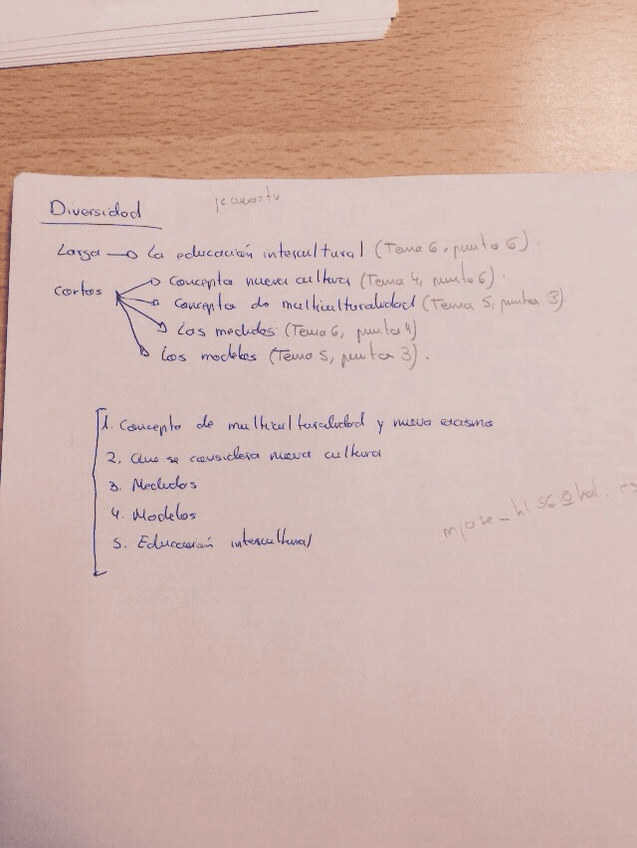 Diversidad
Larga → La educación intercultural (Tema 6, punto 6).
cortas → Concepto nueva cultura (Tema 4, punto 6).
→ Concepto de multiculturalidad (Tema 5, punto 3)
→ Las medidas (Tema 6, punto 4)
→ Los modelos (Tema 5, punto 3).
1. Concepto de multiculturalidad y nuevo racismo
2. Que se considera nueva cultura
3. Medidas
4. Modelos
5. Educación intercultural